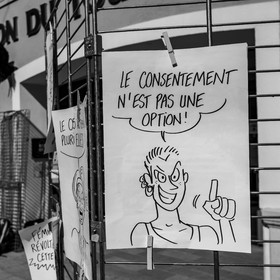 ON DU
LE CONSENTEMENT
N'EST PAS UNE
OPTION!
LE
PLURI
FEM
RÉVOL
CETTE